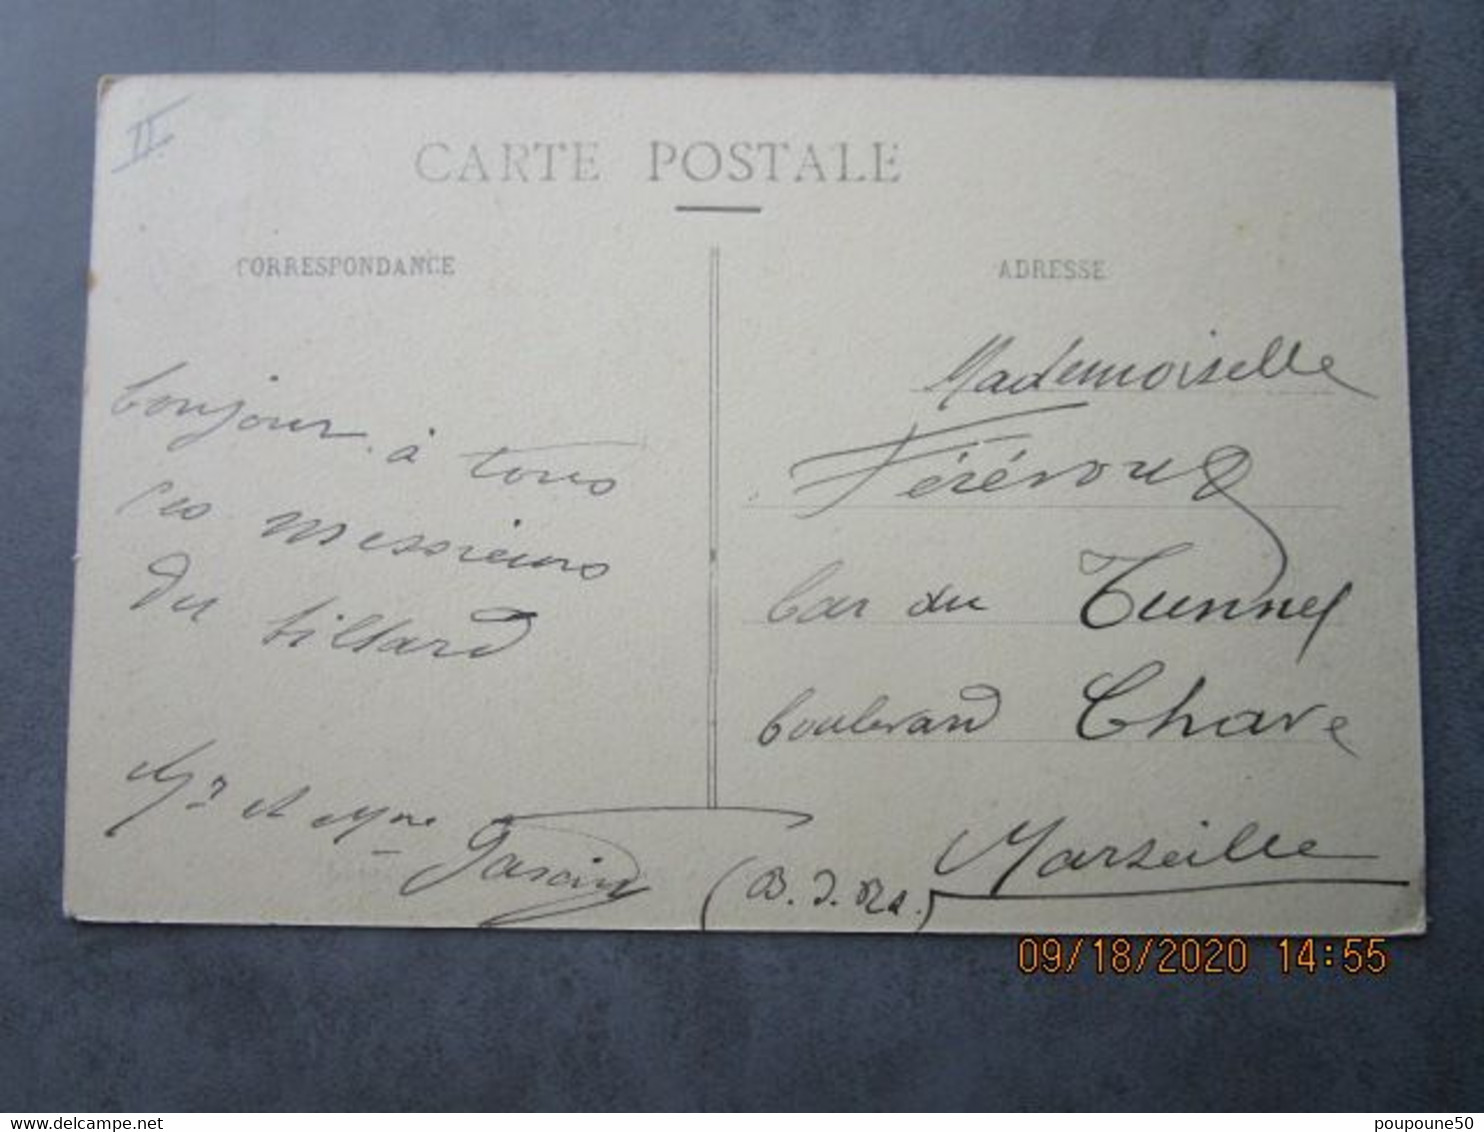 II
CARTE POSTALE
CORRESPONDANCE
bonjour à tous
ces messieurs
du billard
Mr et Mme
ADRESSE
Mademoiselle
bar du Tunnel
boulevard Chave
Marseille
(B. d. Rh.)
09/18/2020 14:55
poupoune50